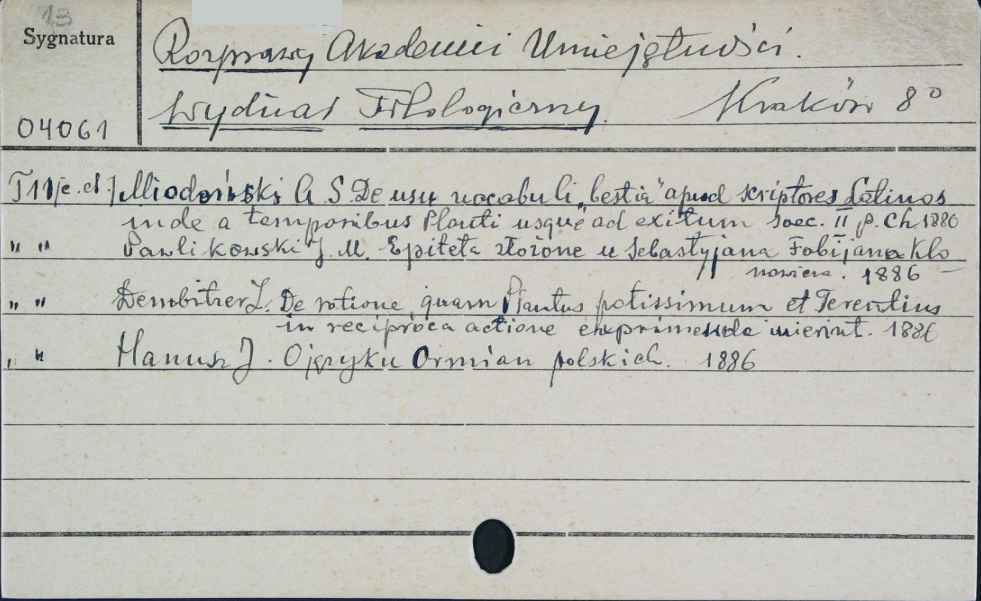 13
Sygnatura
Rozprawy Akademii Umiejętności.
Wydział Filologiczny. Kraków 8°
04061
T 11 /c.d./ Miodoński A. S. De usu vocabuli „bestia" apud scriptores Latinos
inde a temporibus Plauti usque ad exitum saec. II p. Ch 1886
" " Pawlikowski J. M. Epiteta złożone u Sebastyjana Fabijana Klo
nowicza. 1886
" " Dembitzer Z. De ratione, quam Plautus potissimum et Terentius
in reciproca actione exprimenda inierint. 1886
" " Hanusz J. O języku Ormian polskich. 1886